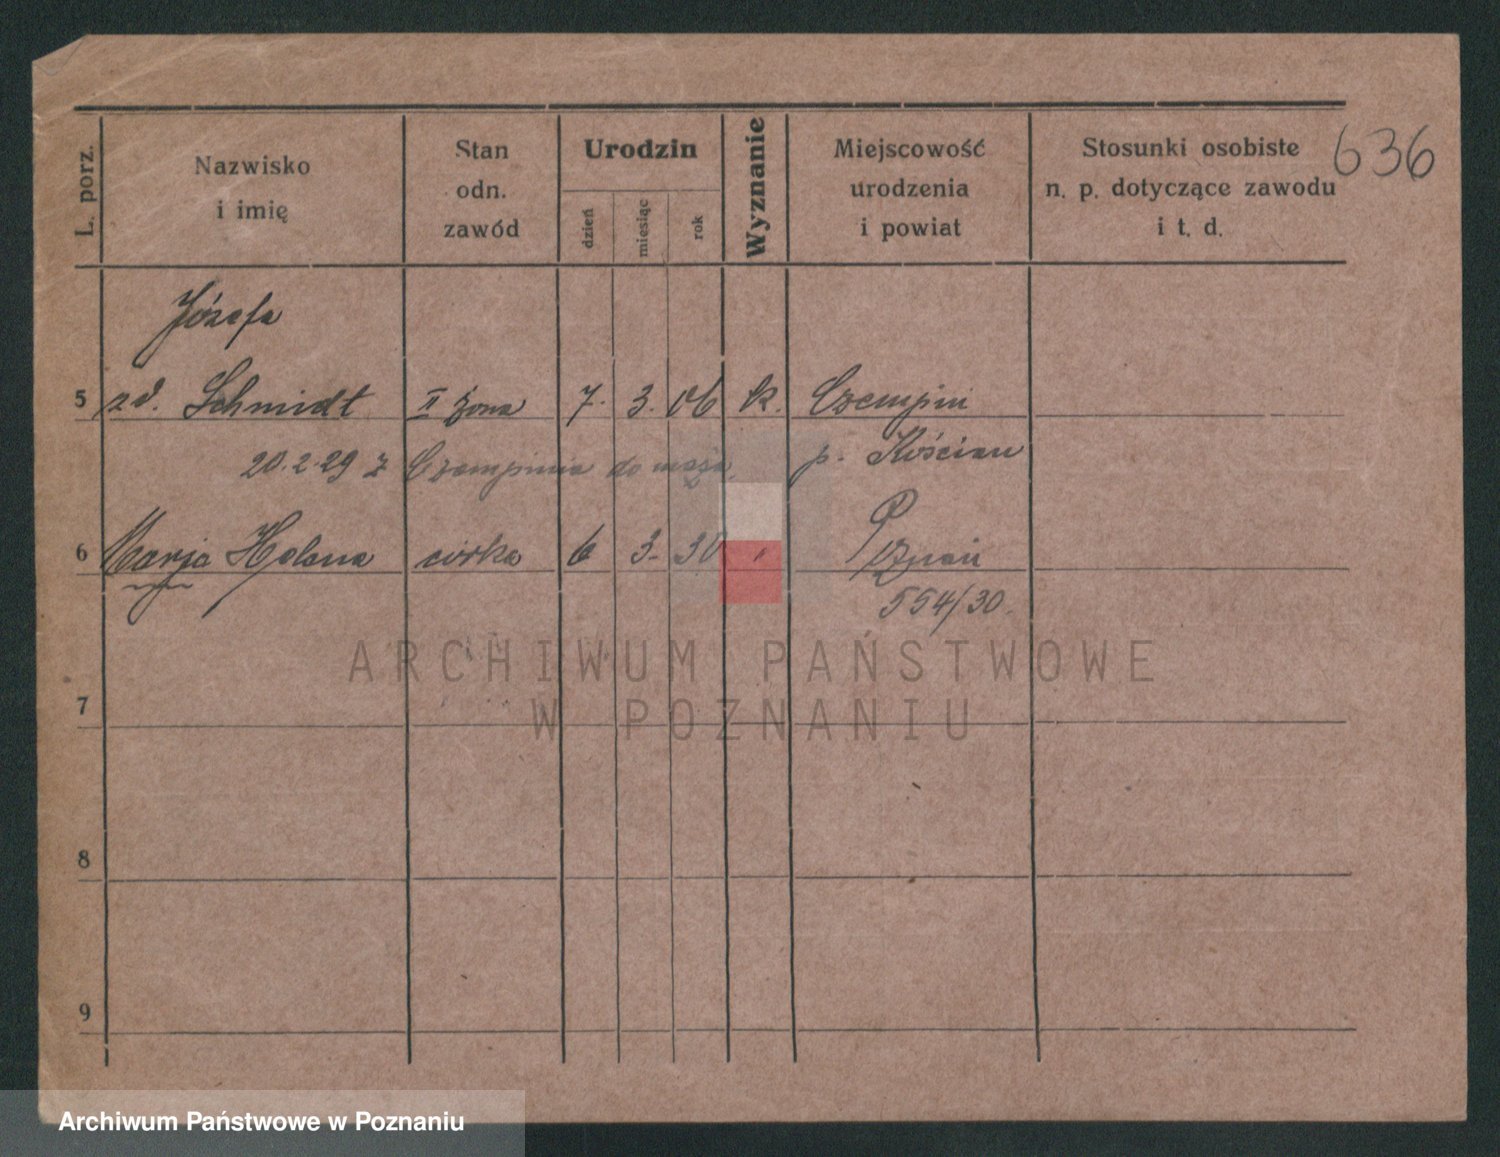 636
L. porz.
Nazwisko
i imię
Stan
odn.
zawód
Urodzin
dzień
miesiąc
rok
Wyznanie
Miejscowość
urodzenia
i powiat
Stosunki osobiste
n. p. dotyczące zawodu
i t. d.
Józefa
5 zd. Schmidt II żona 7. 3. 06 k. Czempiń
20.2.29 z Czempinia do męża p. Kościan
6 Marja Helena córka 6 3. 30 Poznań
554/30.
ARCHIWUM PAŃSTWOWE
7
W POZNANIU
8
9
Archiwum Państwowe w Poznaniu